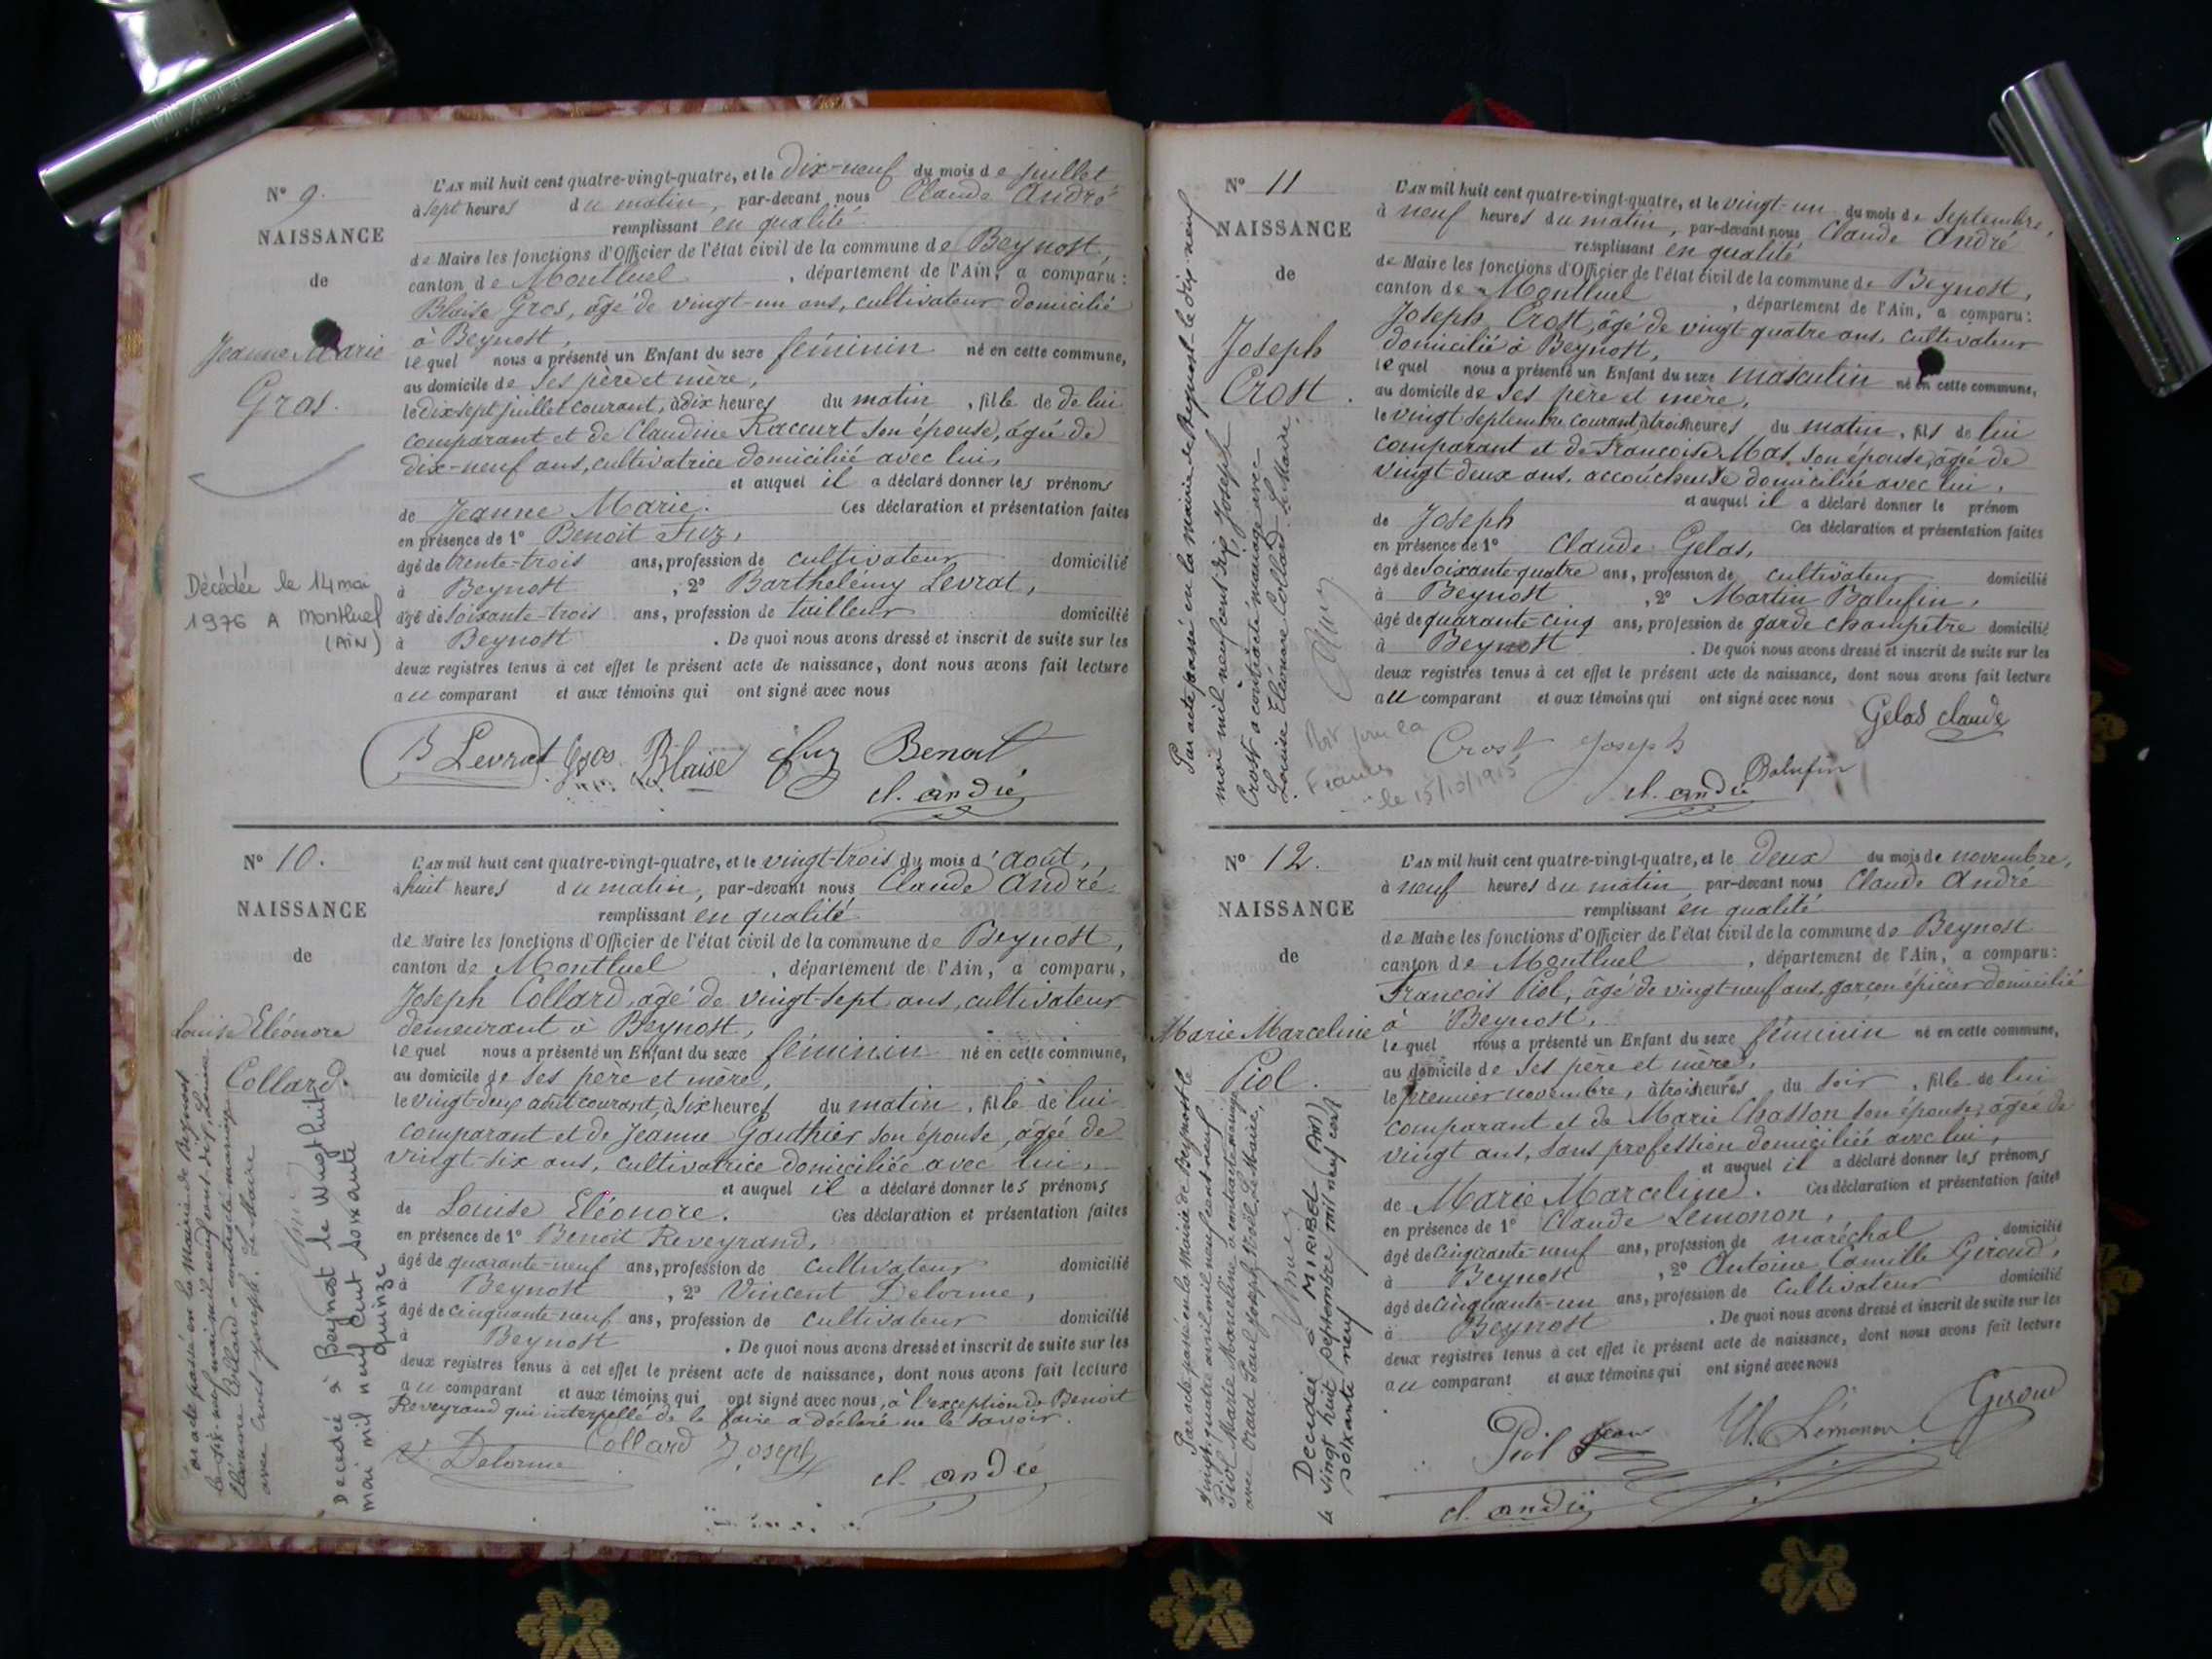 N° 9.
NAISSANCE
de
Jeanne Marie
Gros.
Décédée le 14 mai
1976 A Montluel
(AIN)
L'AN mil huit cent quatre-vingt-quatre, et le Dix-neuf du mois de juillet
à sept heures du matin, par-devant nous Claude André
remplissant en qualité
de Maire les fonctions d'Officier de l'état civil de la commune de Beynost,
canton de Montluel, département de l'Ain, a comparu :
Blaise Gros, âgé de vingt-un ans, cultivateur domicilié
à Beynost,
lequel nous a présenté un Enfant du sexe féminin né en cette commune,
au domicile de ses père et mère,
le dix-sept juillet courant, à dix heures du matin, fille de de lui
comparant et de Claudine Raccurt son épouse, âgée de
dix-neuf ans, cultivatrice domiciliée avec lui,
et auquel il a déclaré donner les prénoms
de Jeanne Marie. Ces déclaration et présentation faites
en présence de 1° Benoit Fuz,
âgé de trente-trois ans, profession de cultivateur domicilié
à Beynost, 2° Barthelémy Levrat,
âgé de soixante-trois ans, profession de tailleur domicilié
à Beynost. De quoi nous avons dressé et inscrit de suite sur les
deux registres tenus à cet effet le présent acte de naissance, dont nous avons fait lecture
au comparant et aux témoins qui ont signé avec nous
B Levrat Gros Blaise fuz Benoit
cl. andré
N° 10.
NAISSANCE
de
Louise Eléonore
Collard.
Par acte passé en la Mairie de Beynost
le dix-neuf mai mil neuf cent dix, Louise
Eléonore Collard a contracté mariage
avec Crost Joseph. Le Maire
Décédée à Beynost le vingt huit
mai mil neuf cent soixante
quinze
L'AN mil huit cent quatre-vingt-quatre, et le vingt-trois du mois d'août,
à huit heures du matin, par-devant nous Claude André
remplissant en qualité
de Maire les fonctions d'Officier de l'état civil de la commune de Beynost,
canton de Montluel, département de l'Ain, a comparu,
Joseph Collard, âgé de vingt-sept ans, cultivateur
demeurant à Beynost,
lequel nous a présenté un Enfant du sexe féminin né en cette commune,
au domicile de ses père et mère,
le vingt-deux août courant, à six heures du matin, fille de lui
comparant et de Jeanne Gauthier son épouse, âgée de
vingt-six ans, cultivatrice domiciliée avec lui,
et auquel il a déclaré donner les prénoms
de Louise Eléonore. Ces déclaration et présentation faites
en présence de 1° Benoit Reveyrand,
âgé de quarante-neuf ans, profession de cultivateur domicilié
à Beynost, 2° Vincent Delorme,
âgé de cinquante-neuf ans, profession de cultivateur domicilié
à Beynost. De quoi nous avons dressé et inscrit de suite sur les
deux registres tenus à cet effet le présent acte de naissance, dont nous avons fait lecture
au comparant et aux témoins qui ont signé avec nous, à l'exception de Benoit
Reveyrand qui interpellé de le faire a déclaré ne le savoir.
V. Delorme Collard Joseph
cl. andré
N° 11
NAISSANCE
de
Joseph
Crost.
Par acte passé en la mairie de Beynost le dix neuf
mai mil neuf cent dix Joseph
Crost a contracté mariage avec
Louise Eléonore Collard. Le Maire,
Mort pour la
France
le 15/10/1915
L'AN mil huit cent quatre-vingt-quatre, et le vingt-un du mois de Septembre,
à neuf heures du matin, par-devant nous Claude André
remplissant en qualité
de Maire les fonctions d'Officier de l'état civil de la commune de Beynost,
canton de Montluel, département de l'Ain, a comparu :
Joseph Crost, âgé de vingt-quatre ans, cultivateur
domicilié à Beynost,
lequel nous a présenté un Enfant du sexe masculin né en cette commune,
au domicile de ses père et mère,
le vingt Septembre courant, à trois heures du matin, fils de lui
comparant et de Françoise Mas, son épouse, âgée de
vingt-deux ans, accoucheuse domiciliée avec lui,
et auquel il a déclaré donner le prénom
de Joseph Ces déclaration et présentation faites
en présence de 1° Claude Gelas,
âgé de soixante-quatre ans, profession de cultivateur domicilié
à Beynost, 2° Martin Balufin,
âgé de quarante-cinq ans, profession de garde champêtre domicilié
à Beynost. De quoi nous avons dressé et inscrit de suite sur les
deux registres tenus à cet effet le présent acte de naissance, dont nous avons fait lecture
au comparant et aux témoins qui ont signé avec nous
Gelas claude
Crost Joseph
cl. andré Balufin
N° 12.
NAISSANCE
de
Marie Marceline
Piol.
Par acte passé en la Mairie de Beynost le
vingt-quatre avril mil neuf cent neuf
Piol Marie Marceline a contracté mariage
avec Paul Joseph Le Maire,
Décédée à MIRIBEL (AIN)
le vingt huit septembre mil neuf cent
soixante neuf
L'AN mil huit cent quatre-vingt-quatre, et le deux du mois de novembre,
à neuf heures du matin, par-devant nous Claude André
remplissant en qualité
de Maire les fonctions d'Officier de l'état civil de la commune de Beynost
canton de Montluel, département de l'Ain, a comparu :
François Piol, âgé de vingt-neuf ans, garçon épicier domicilié
à Beynost,
lequel nous a présenté un Enfant du sexe féminin né en cette commune,
au domicile de ses père et mère,
le premier novembre, à trois heures du soir, fille de lui
comparant et de Marie Chasson son épouse, âgée de
vingt ans, sans profession domiciliée avec lui,
et auquel il a déclaré donner les prénoms
de Marie Marceline. Ces déclaration et présentation faites
en présence de 1° Claude Lemonon,
âgé de cinquante-neuf ans, profession de maréchal domicilié
à Beynost, 2° Antoine Camille Giroud,
âgé de cinquante-un ans, profession de cultivateur domicilié
à Beynost. De quoi nous avons dressé et inscrit de suite sur les
deux registres tenus à cet effet le présent acte de naissance, dont nous avons fait lecture
au comparant et aux témoins qui ont signé avec nous
Piol Lémonon Giroud
cl. andré